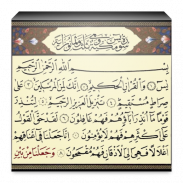 بِسْمِ اللَّهِ الرَّحْمَٰنِ الرَّحِيمِ
يس وَالْقُرْآنِ الْحَكِيمِ إِنَّكَ لَمِنَ الْمُرْسَلِينَ عَلَى
صِرَاطٍ مُسْتَقِيمٍ تَنْزِيلَ الْعَزِيزِ الرَّحِيمِ لِتُنْذِرَ
قَوْمًا مَا أُنْذِرَ آبَاؤُهُمْ فَهُمْ غَافِلُونَ لَقَدْ حَقَّ الْقَوْلُ
عَلَى أَكْثَرِهِمْ فَهُمْ لَا يُؤْمِنُونَ إِنَّا جَعَلْنَا فِي أَعْنَاقِهِمْ
أَغْلَالًا فَهِيَ إِلَى الْأَذْقَانِ فَهُمْ مُقْمَحُونَ وَجَعَلْنَا مِنْ بَيْنِ